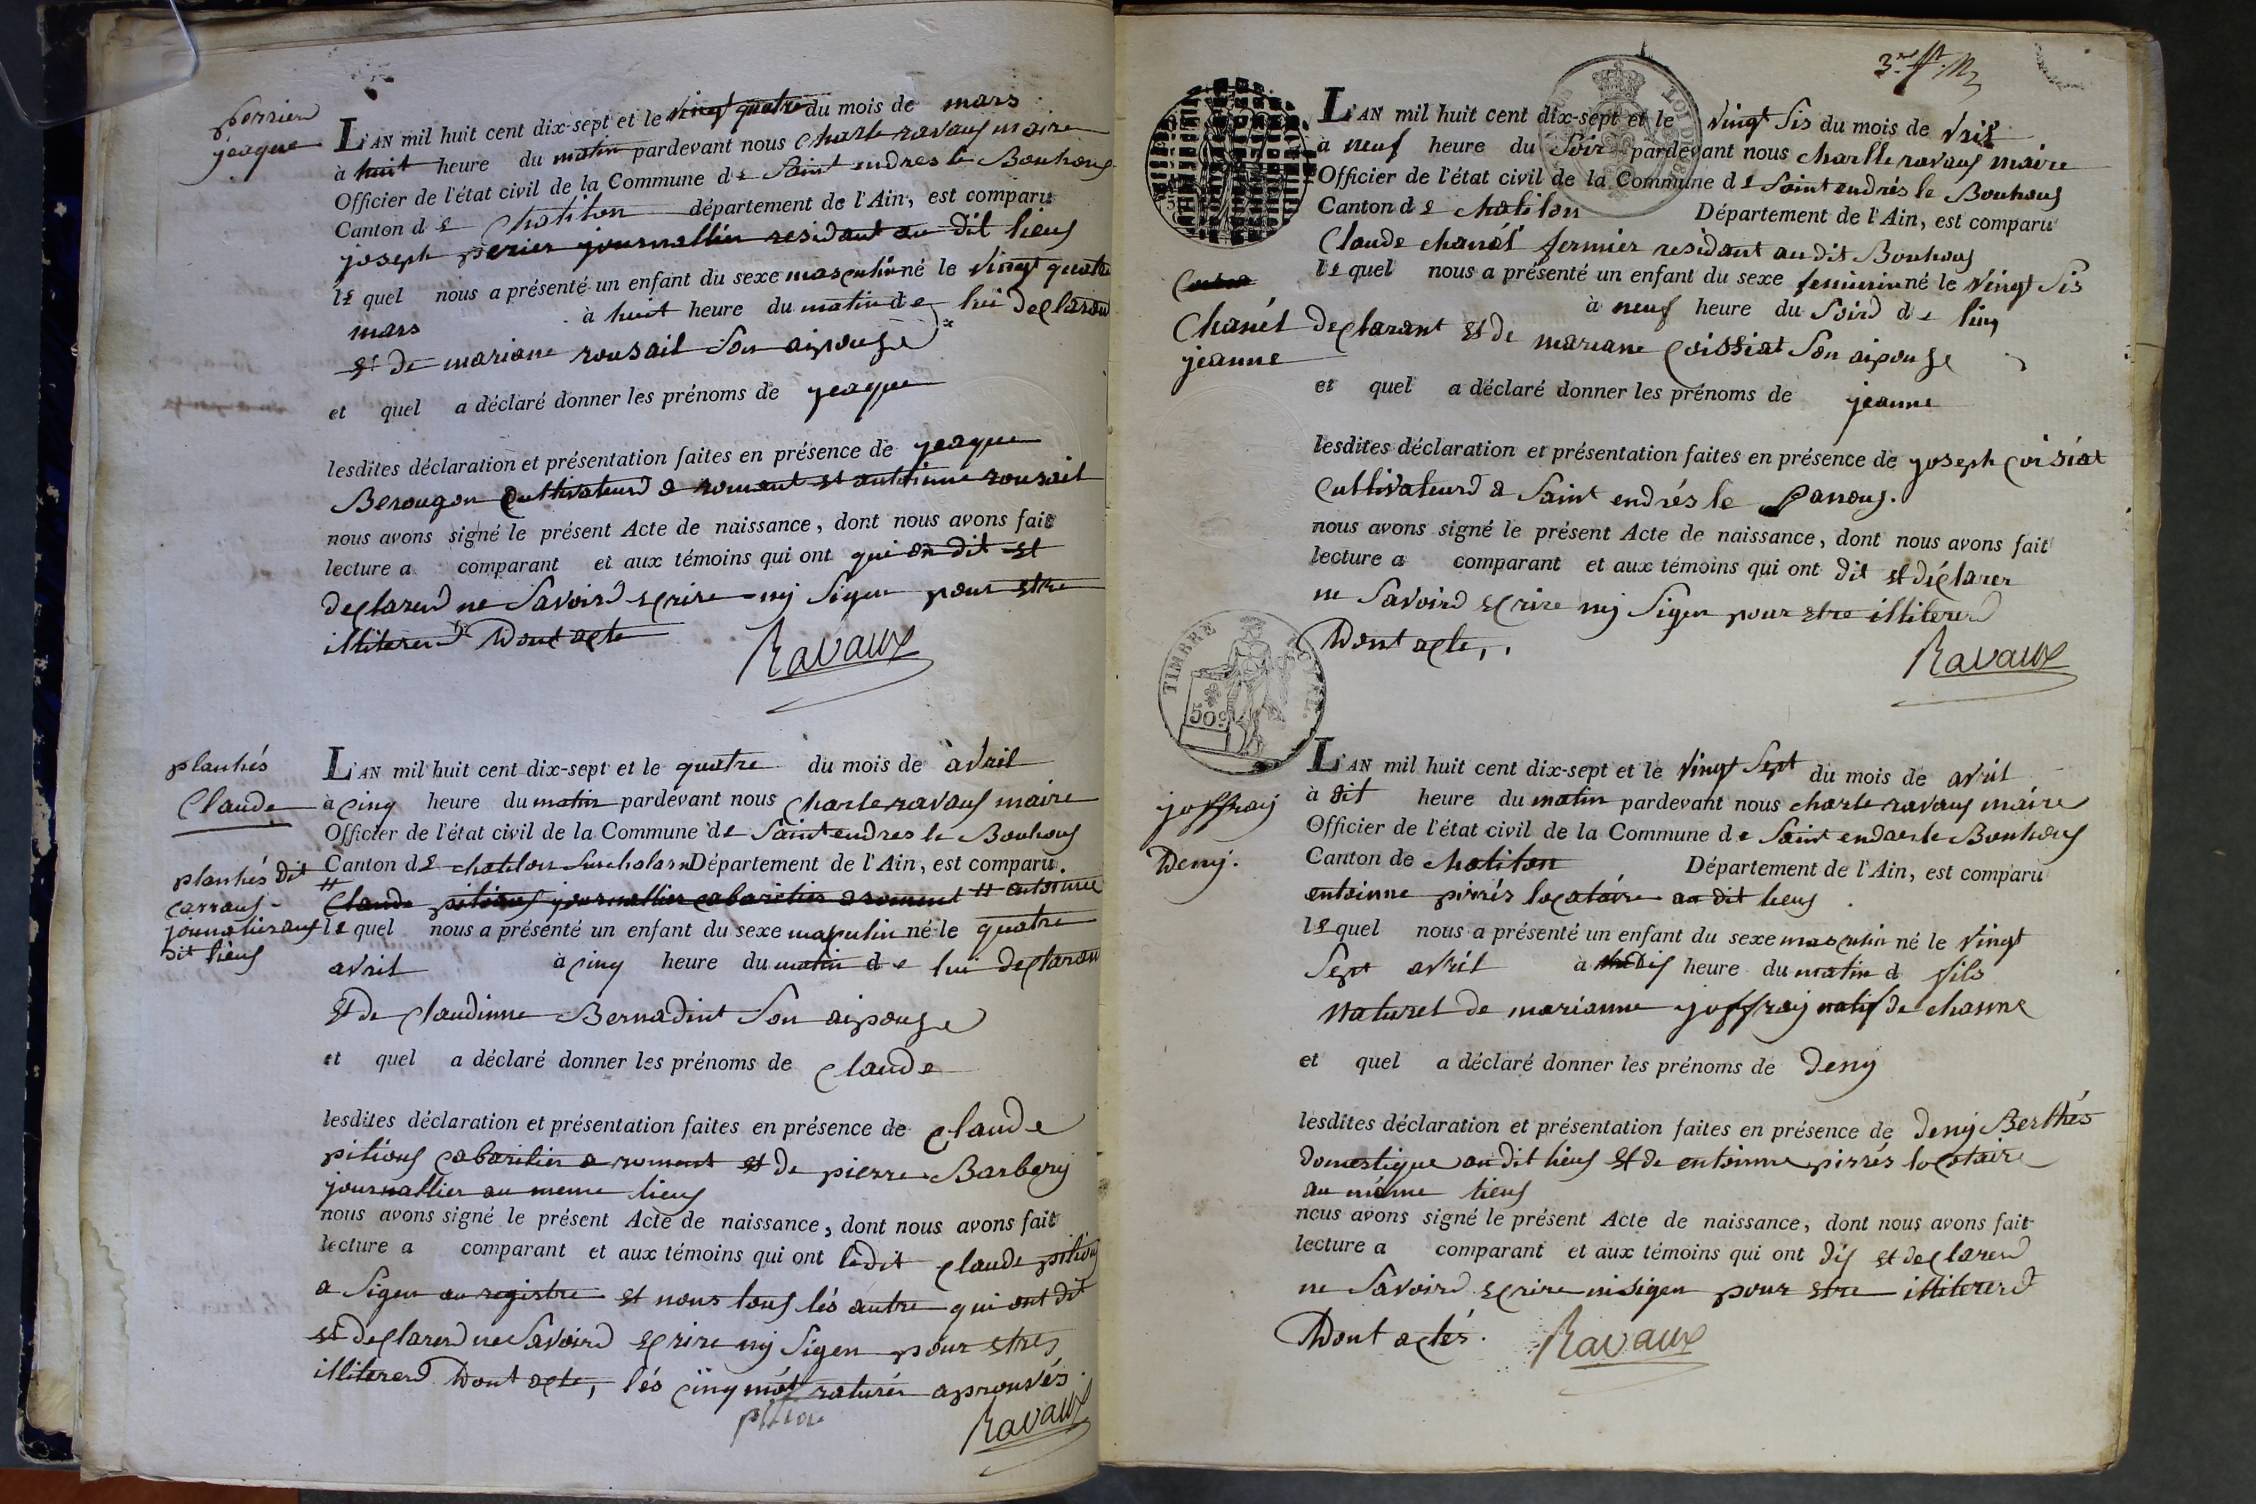 perrier
yeaque
L'AN mil huit cent dix-sept et le vingt quatre du mois de mars
à huit heure du matin pardevant nous Charle ravaux maire
Officier de l'état civil de la Commune de Saint endres le Bouhous
Canton de Chatilon département de l'Ain, est comparu
joseph perier journallier residant au dit lieus
le quel nous a présenté un enfant du sexe masculin né le vingt quatre
mars à huit heure du matin de lui declaran
et de mariane rousait son aipouse
et quel a déclaré donner les prénoms de yeaque
lesdites déclaration et présentation faites en présence de yeaque
Berougon Cultivateurd a romant et antoinne rousait
nous avons signé le présent Acte de naissance, dont nous avons fait
lecture a comparant et aux témoins qui ont qui on dit et
declarerd ne Savoird ecrire ny Signer pour etre
illitererd Dont acte
Ravaux
planhés
Claude
planhés dit
carraus
journalier aus
dit lieus
L'AN mil huit cent dix-sept et le quatre du mois de avril
à cinq heure du matin pardevant nous Charle ravaux maire
Officier de l'état civil de la Commune de Saint endres le Bouhous
Canton de chatilon Surchalarn Département de l'Ain, est comparu.
# Claude pitious journallier cabaritier a roment # antoinne
le quel nous a présenté un enfant du sexe masculin né le quatre
avril à cinq heure du matin de lui declaran
et de Claudinne Bernadint Son aipouse
et quel a déclaré donner les prénoms de Claude
lesdites déclaration et présentation faites en présence de Claude
pitious cabaritier a roment et de pierre Barbery
journallier au meme lieus
nous avons signé le présent Acte de naissance, dont nous avons fait
lecture a comparant et aux témoins qui ont ledit Claude pitious
a Signer au registre et nous tous lés autre qui ont dit
et declarerd ne Savoird ecrire ny Signer pour etres
illitererd Dont acte, lés cinq mot raturér aprouvés.
pition
Ravaux
L'AN mil huit cent dix-sept et le vingt Sis du mois de vril
à neuf heure du Soir pardevant nous charlle ravaux maire
Officier de l'état civil de la Commune de Saint endrés le Bouhous
Canton de chatilon Département de l'Ain, est comparu
Claude chanél fermier residant au dit Bouhous
le quel nous a présenté un enfant du sexe feminin né le vingt Sis
à neuf heure du Soird de luy
Chanél
jeanne
declarant et de mariane Coissiat Son aipouse
et quel a déclaré donner les prénoms de jeanne
lesdites déclaration et présentation faites en présence de joseph Coisiat
Cultivateurd a Saint endrés le panous.
nous avons signé le présent Acte de naissance, dont nous avons fait
lecture a comparant et aux témoins qui ont dit et déclarer
ne Savoird ecrire ny Signer pour etre illitererd
Dont acte,,
Ravaux
TIMBRE ROYAL.
50c
joffray
Deny.
L'AN mil huit cent dix-sept et le vingt Sept du mois de avril
à dit heure du matin pardevant nous charle ravaux maire
Officier de l'état civil de la Commune de Saint endres le Bouhous
Canton de chatilon Département de l'Ain, est comparu
entoinne pirrés locataire au dit lieus
le quel nous a présenté un enfant du sexe masculin né le vingt
Sept avril à dis heure du matin d fils
naturel de marianne joffray natif de channe
et quel a déclaré donner les prénoms de deny
lesdites déclaration et présentation faites en présence de deny Berthés
domestique au dit lieus et de entoinne pirrés locataire
au même lieus
nous avons signé le présent Acte de naissance, dont nous avons fait
lecture a comparant et aux témoins qui ont dis et declarerd
ne Savoird ecrire ni signer pour etre illitererd
Dont actés.
Ravaux